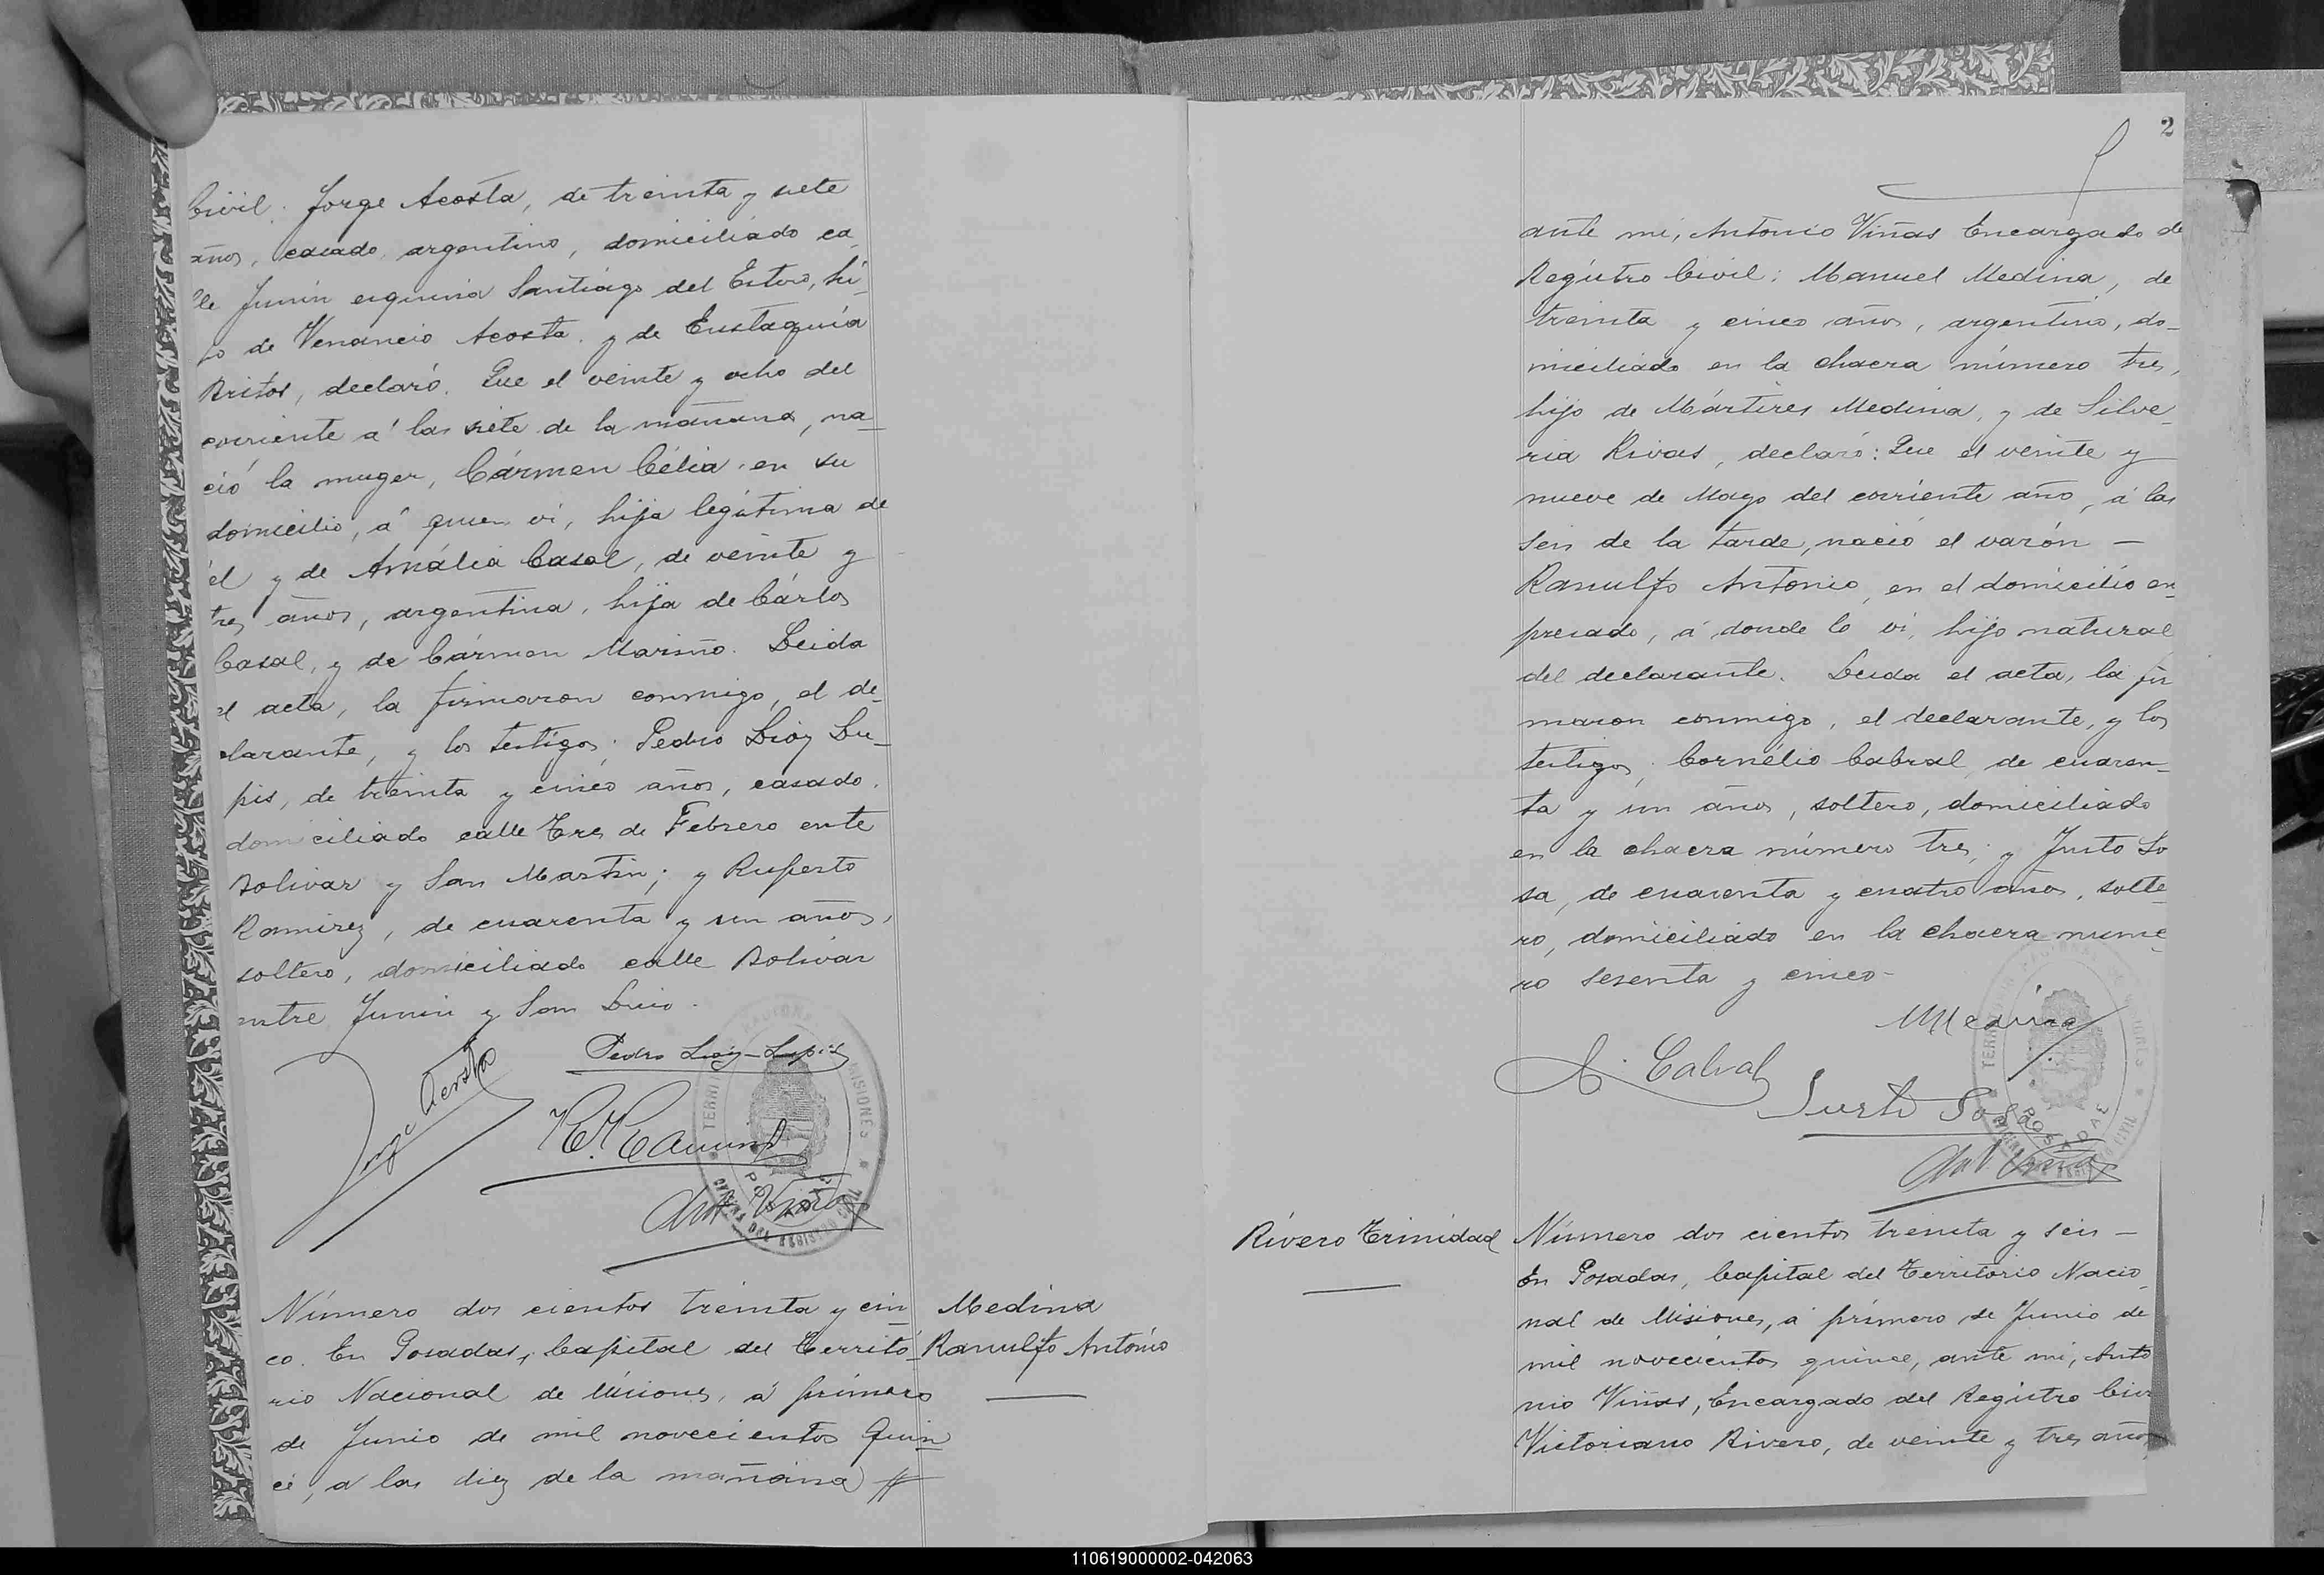 Civil: Jorge Acosta, de treinta y siete
años, casado, argentino, domiciliado ca
lle Junin esquina Santiago del Estero, hi-
jo de Venancio Acosta y de Eustaquia
Britos, declaró. Que el veinte y ocho del
corriente á las siete de la mañana, na
ció la muger, Cármen Célia, en su
domicilio, á quien vi, hija legítima de
él y de Amália Casal, de veinte y
tres años, argentina, hija de Cárlos
Casal, y de Cármen Mariño. Leida
el acta, la firmaron conmigo, el de_
clarante, y los testigos: Pedro Lioy Lu_
pis, de treinta y cinco años, casado.
domiciliado calle Tres de Febrero ente
Bolivar y San Martin; y Ruperto
Ramirez, de cuarenta y un años,
soltero, domiciliado calle Bolivar
entre Junin y San Luis.
Jorge Acosta
Pedro Lioy-Lupis
Ant. Viñas
Número dos cientos treinta y cin_
co. En Posadas, Capital del Territó_
rio Nacional de Misiones, á primero
de Junio de mil novecientos quin
ce, a las diez de la mañana
Medina
Ranulfo António
2
ante mi, Antonio Viñas Encargado de
Registro Civil: Manuel Medina, de
treinta y cinco años, argentino, do_
miciliado en la chacra número tres,
hijo de Mártires Medina, y de Silve_
ria Rivas, declaró: Que el veinte y
nueve de Mayo del corriente año, á las
seis de la tarde, nació el varón —
Ranulfo Antonio, en el domicilio ex
presado, á donde lo vi, hijo natural
del declarante. Leida el acta, la fir
maron conmigo, el declarante, y los
testigos; Cornélio Cabral, de cuaren_
ta y un años, soltero, domiciliado
en la chacra número tres; y Justo So
sa, de cuarenta y cuatro años, solte_
ro, domiciliado en la chacra núme_
ro sesenta y cinco-
M Medina
C. Cabral
Justo Sosa
Ant. Viñas
TERRITORIO NACIONAL DE MISIONES
POSADAS
Rivero Trinidad
Número dos cientos treinta y seis —
En Posadas, Capital del Territorio Nacio_
nal de Misiones, á primero de Junio de
mil novecientos quince, ante mi, Anto
nio Viñas, Encargado del Registro Civil
Victoriano Rivero, de veinte y tres años,
110619000002-042063